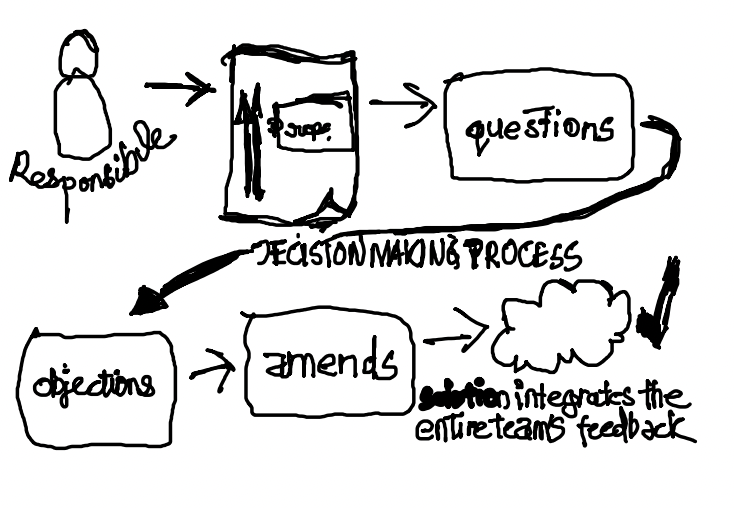 Responsible
Prop.
questions
DECISION MAKING PROCESS
objections
amends
solution integrates the
entire team's feedback